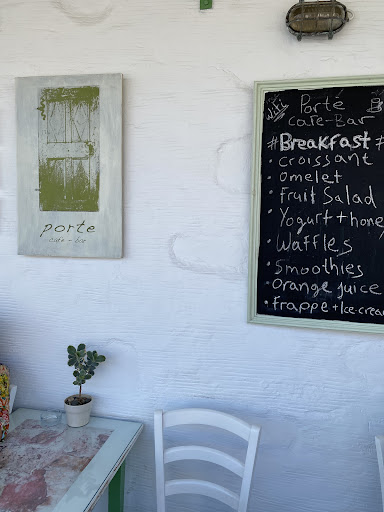 porte
cafe - bar
Wifi
Porté
cafe-Bar
#Breakfast #
• croissant
• Omelet
• Fruit Salad
• Yogurt + hone
• Waffles
• Smoothies
• Orange juice
• Frappe + Ice-crea